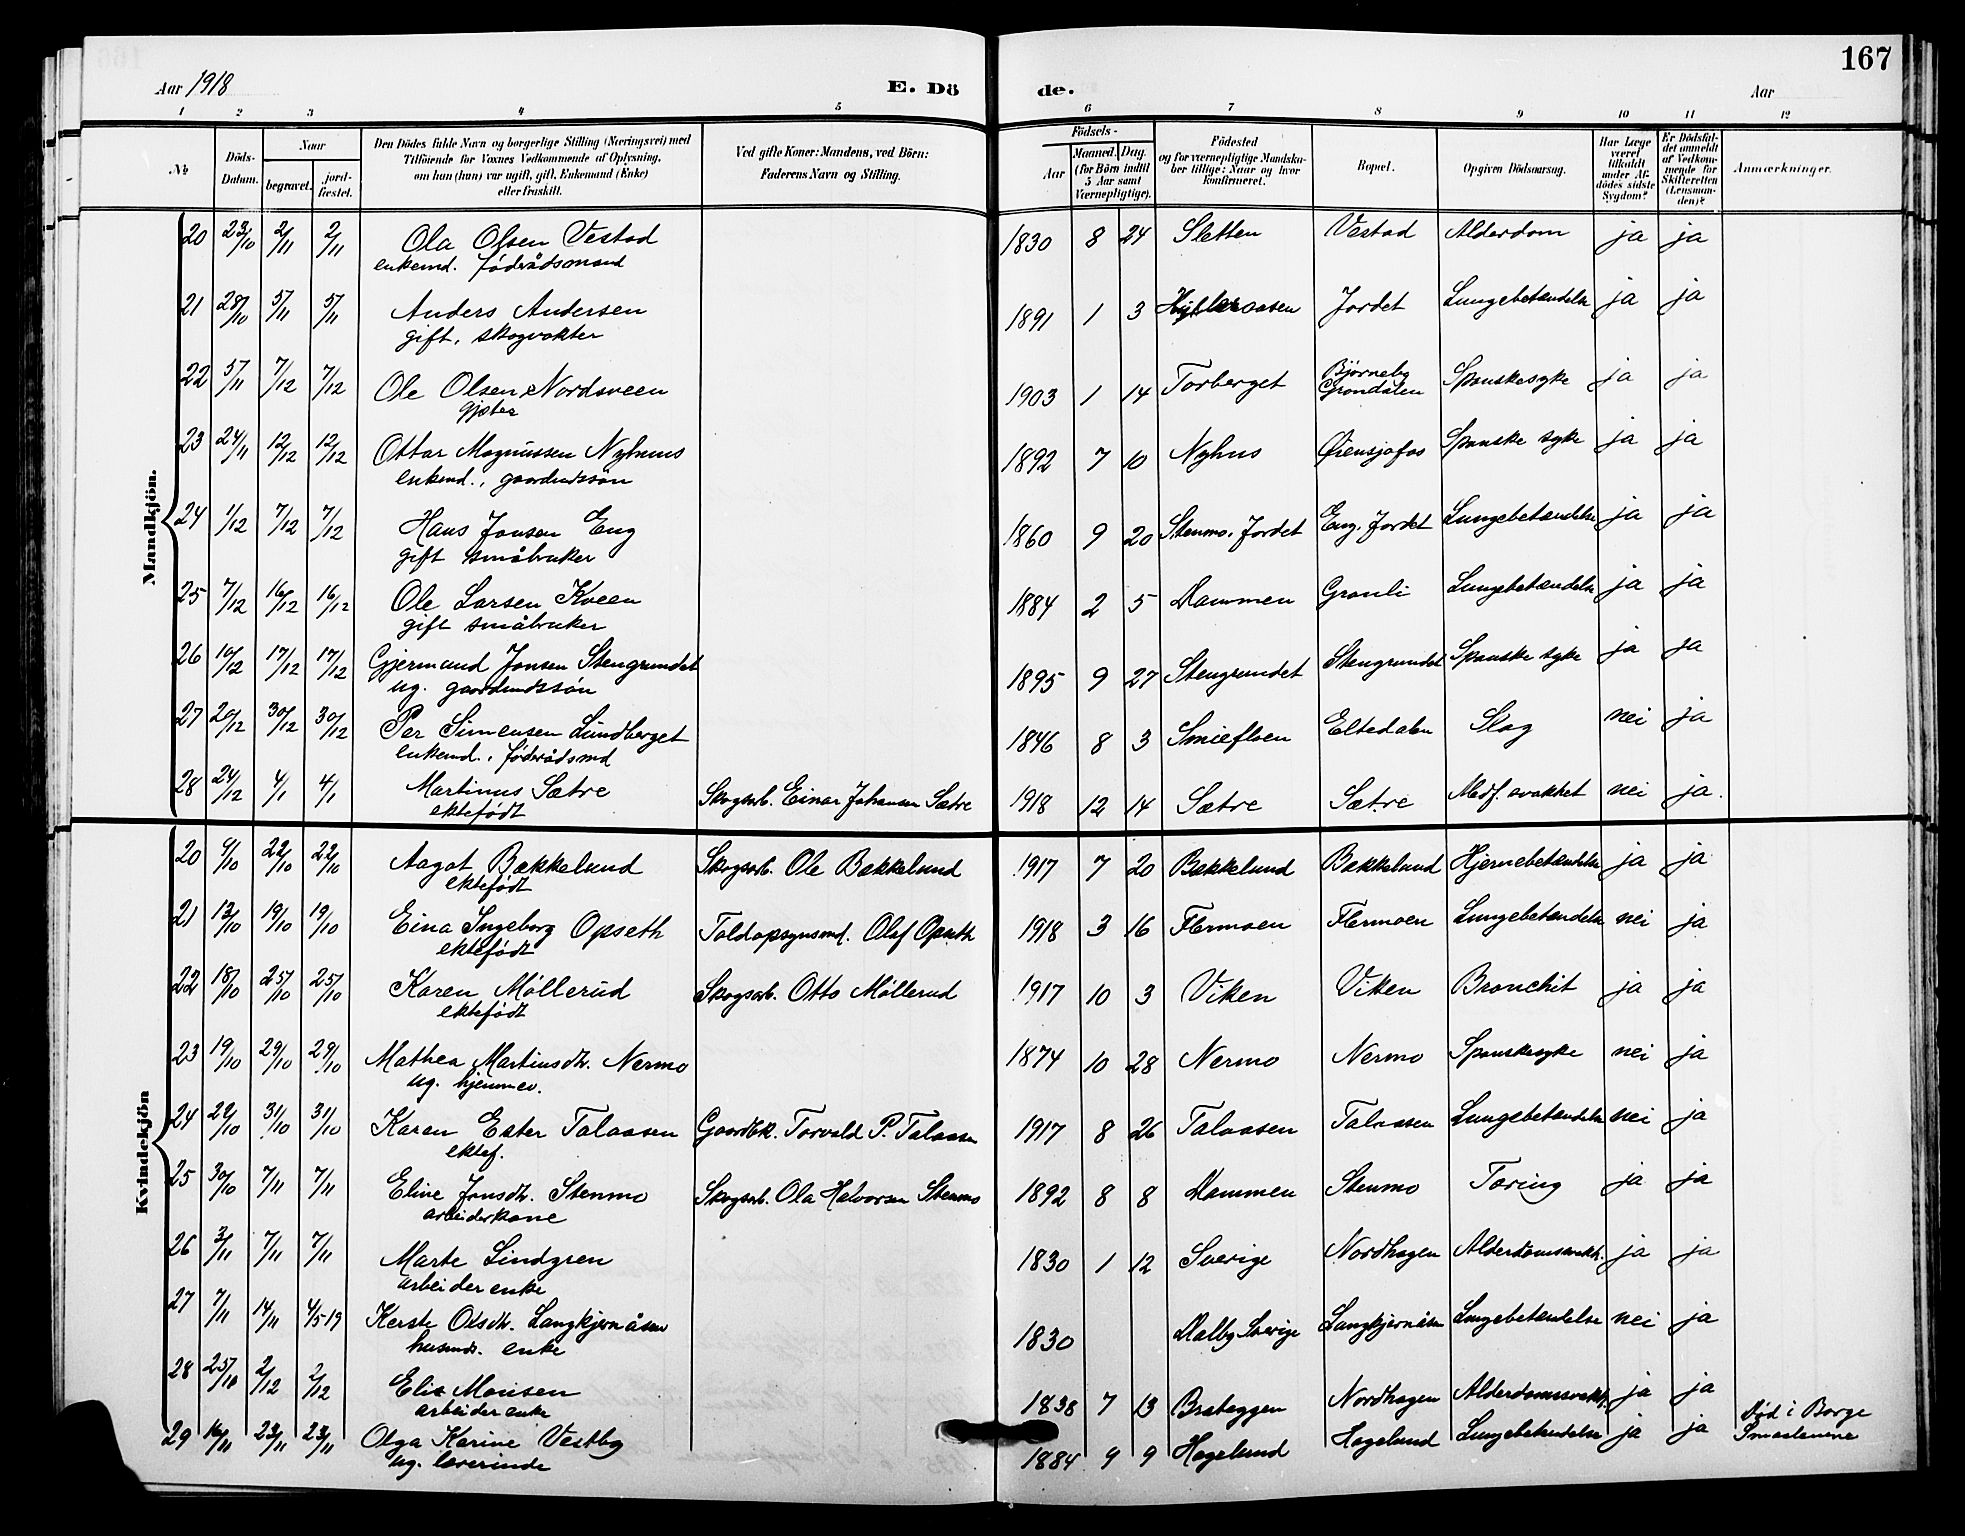 167
Aar 1918
E. Dö
de.
Aar
1 2 3 4 5 6 7 8 9 10 11 12
No
Döds-Datum.
Naar
begravet.
jord-fæstet.
Den Dödes fulde Navn og borgerlige Stilling (Næringsvei) med
Tilföiende for Voxnes Vedkommende af Oplysning,
om hun (han) var ugift, gift, Enkemand (Enke)
eller fraskilt.
Ved gifte Koner: Mandens, ved Börn:
Faderens Navn og Stilling.
Födsels-
Aar
Maaned. Dag.
(for Börn indtil
5 Aar samt
Værnepligtige).
Födested
og for værnepligtige Mandska-
ber tillige: Naar og hvor
konfirmeret.
Bopæl.
Opgiven Dödsaarsag.
Har Læge
været
tilkaldt
under Af-
dödes sidste
Sygdom?
Er Dödsfal-
det anmeldt
af Vedkom-
mende for
Skifteretten
(Lensman-
den)?
Anmærkninger.
Mandkjön.
20 23/10 2/11 2/11 Ola Olsen Vestad 1830 8 24 Sletten Vestad Alderdom ja ja
enkemd. föderådsmand
21 28/10 5/11 5/11 Anders Andersen 1891 1 3 Hylleraasen Jordet Lungebetændelse ja ja
gift. skogvokter
22 5/11 7/12 7/12 Ole Olsen Nordsveen 1903 1 14 Torberget Björneby Grøndalen Spanskesyke ja ja
gjæter
23 24/11 12/12 12/12 Ottar Magnussen Nyhuus 1892 7 10 Nyhus Ørensjøfos Spanske syke ja ja
enkemd., gaardmdssön
24 1/12 7/12 7/12 Hans Jonsen Eng 1860 9 20 Stenmo. Jordet Eng. Jordet Lungebetændelse ja ja
gift småbruker
25 7/12 16/12 16/12 Ole Larsen Kveen 1884 2 5 Mammen Granli Lungebetændelse ja ja
gift småbruker
26 10/12 17/12 17/12 Gjermund Jonsen Stengrundet 1895 9 27 Stengrundet Stengrundet Spanske syke ja ja
ug. gaardmdssön
27 20/12 30/12 30/12 Per Simensen Lundberget 1846 8 3 Smiefloen Eltedalen Slag nei ja
enkemd., föderådsmd
28 24/12 4/1 4/1 Martinus Sætre Skogsarb. Einar Johansen Sætre 1918 12 14 Sætre Sætre Medf. svakhet nei ja.
ektefödt
Kvindekjön
20 9/10 22/10 22/10 Aagot Bækkelund Skogsarb. Ole Bækkelund 1917 7 20 Bækkelund Bækkelund Hjernebetændelse ja ja
ektefödt
21 13/10 19/10 19/10 Eina Ingeborg Opseth Toldopsynsmd. Olaf Opseth 1918 3 16 Flermoen Flermoen Lungebetændelse nei ja
ektefödt
22 18/10 25/10 25/10 Karen Möllerud Skogsarb. Otto Möllerud 1917 10 3 Viken Viken Bronchit ja ja
ektefödt
23 19/10 29/10 29/10 Mathea Martinsdtr. Nermo 1874 10 28 Nermo Nermo Spanskesyke nei ja
ug. hjemmev.
24 22/10 31/10 31/10 Karen Ester Talaasen Gaardbk. Torvald P. Talaasen 1917 8 26 Talaasen Talaasen Lungebetændelse nei ja
ektef.
25 30/10 7/11 7/11 Eline Jonsdtr. Stenmo Skogsarb. Ola Halvorsen Stenmo 1892 8 8 Mammen Stenmo Tæring ja ja
arbeiderkone
26 3/11 7/11 7/11 Marte Lindgren 1830 1 12 Sverige Nordhagen Alderdomsvakh. ja ja
arbeider enke
27 7/11 14/11 4/5-19 Kerste Olsdtr. Langkjernåsen 1830 Malby Sverige Langkjernåsen Lungebetændelse nei ja
husmds. enke
28 25/10 2/12 2/12 Elis Monsen 1838 7 13 Brateggen Nordhagen Alderdomssvakh. ja ja
arbeider enke
29 16/11 23/11 23/11 Olga Karine Vestby 1884 9 9 Hagelund Hagelund Lungebetændelse ja ja Död i Borge Smaalenene
ug. lærerinde